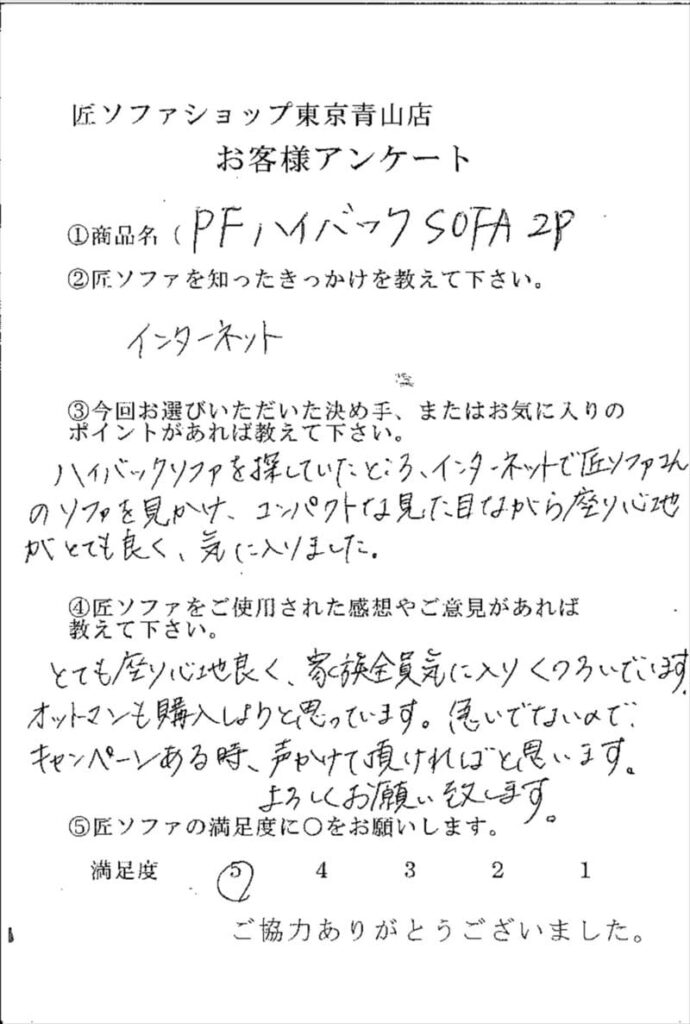 匠ソファショップ東京青山店
お客様アンケート
①商品名（ PFハイバックSOFA 2P
②匠ソファを知ったきっかけを教えて下さい。
インターネット
③今回お選びいただいた決め手、またはお気に入りの
ポイントがあれば教えて下さい。
ハイバックソファを探していたところ、インターネットで匠ソファさん
のソファを見かけ、コンパクトな見た目ながら座り心地
がとても良く、気に入りました。
④匠ソファをご使用された感想やご意見があれば
教えて下さい。
とても座り心地良く、家族全員気に入りくつろいでいます
オットマンも購入しようと思っています。急いでないので、
キャンペーンある時、声かけて頂ければと思います。
よろしくお願い致します。
⑤匠ソファの満足度に〇をお願いします。
満足度 5 4 3 2 1
ご協力ありがとうございました。